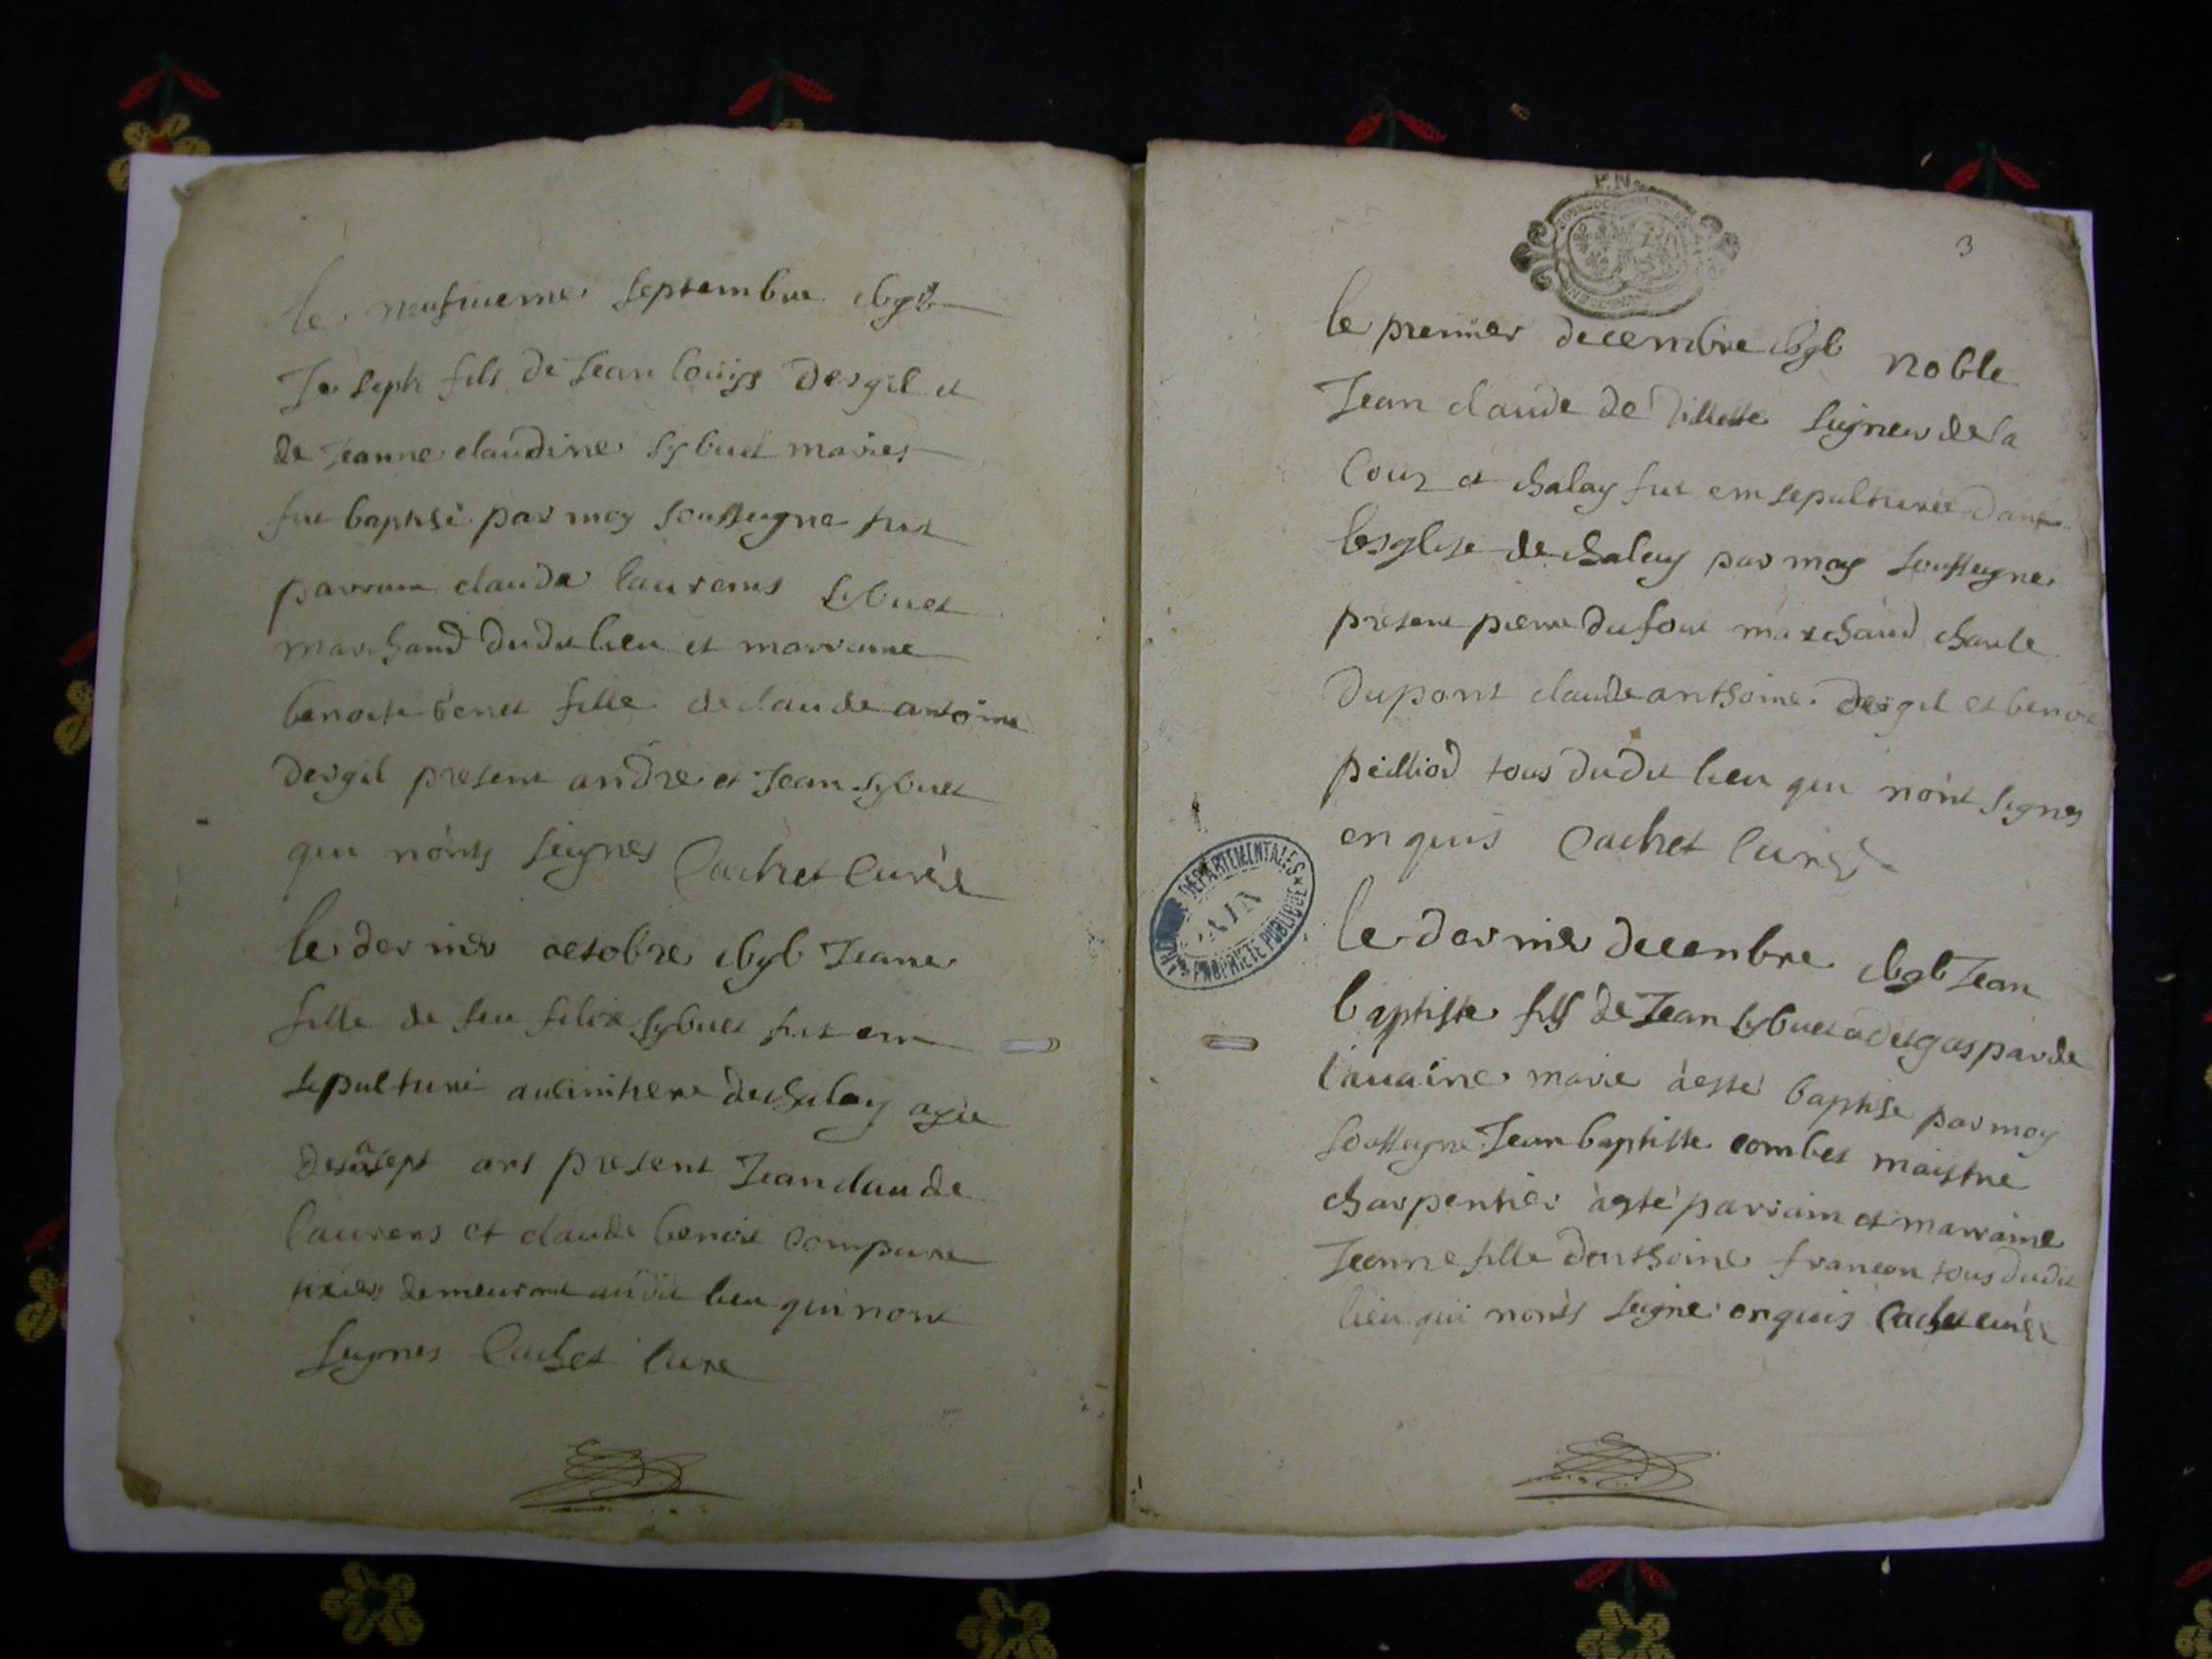 le neufvieme septembre
Joseph fils de Jean loüys Desgil et
de Jeanne claudine sybuet maries
fut baptisé par moy soussigne fut
parrain claude laurens sybuet
marchand dudit lieu et marraine
benoite benet fille de claude antoine
Desgil present andre et Jean sybuet
qui nonts seignes Cachet Curé
le dernier octobre Jeane
fille de feu felix sybuet fut em
sepulturé au cimitiere de chaley agée
de sept ans present Jean claude
laurens et claude benoit
tixier demeurant audit lieu qui nont
seignes Cachet Cure
P.N.
3
le premier decembre noble
Jean claude de seigneur de la
Cour et chalay fut emsepulturée dans
lesglise de chaley par moy soussigne
present pierre dufour marchand charle
Dupont claude anthoine Desgil et benoi
peilliod tous dudit lieu qui nont signes
enquis Cachet Curé
le dernier decenbre Jean
baptiste fils de Jean sybuet gasparde
marie a esté baptise par moy
soussigne Jean baptiste combet maistre
charpentier a esté parrain et marraine
Jeanne fille danthoine francon tous dudit
lieu qui nonts seigne enquis Cachet curé
DÉPARTEMENTALES
AIN
PROPRIÉTÉ PUBLIQUE